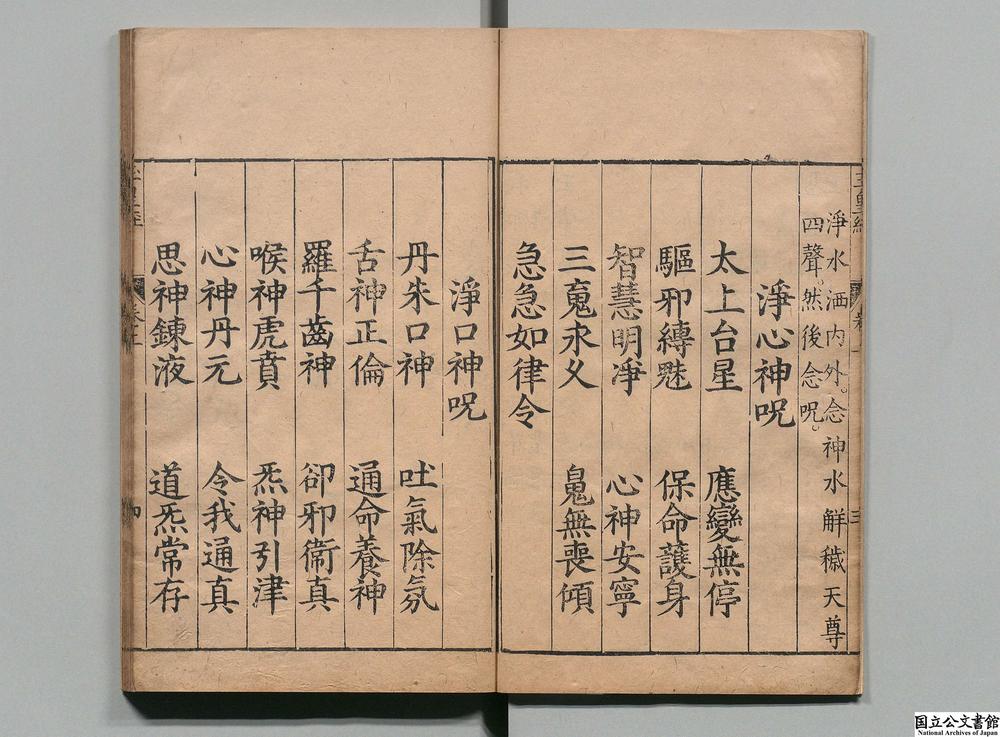 淨水洒内外。念神水解穢天尊
四聲。然後念呪。
淨心神呪
太上台星　應變無停
驅邪縳魅　保命護身
智慧明淨　心神安寧
三䰟永乆　䰟無喪傾
急急如律令
淨口神呪
丹朱口神　吐氣除氛
舌神正倫　通命養神
羅千齒神　卻邪衞真
喉神虎賁　炁神引津
心神丹元　令我通真
思神鍊液　道炁常存
国立公文書館
National Archives of Japan